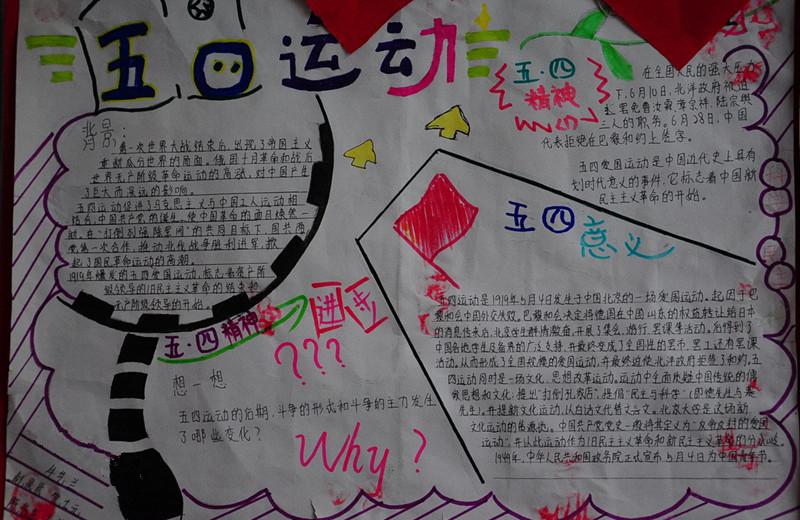 五四运动
背景:
第一次世界大战结束后,出现了帝国主义
重新瓜分世界的局面。俄国十月革命和战后
世界无产阶级革命运动的高涨,对中国产生
了巨大而深远的影响。
五四运动促进了马克思主义与中国工人运动相
结合,中国共产党的诞生,使中国革命的面目焕然一
新,在"打倒列强除军阀"的共同目标下,国共两
党第一次合作,推动北伐战争胜利进军,掀
起了国民革命运动的高潮。
1919年爆发的五四爱国运动,标志着资产阶
级领导的旧民主主义革命的结束和
无产阶级领导的开始。
五·四
精神
在全国人民的强大压力
下,6月10日,北洋政府被迫
罢免曹汝霖,章宗祥,陆宗舆
三人的职务。6月28日,中国
代表拒绝在巴黎和约上签字。
五四爱国运动是中国近代史上具有
划时代意义的事件,它标志着中国新
民主主义革命的开始。
五四意义
五四运动是1919年5月4日发生于中国北京的一场爱国运动。起因于巴
黎和会中国外交失败。巴黎和会决定将德国在中国山东的权益转让给日本
的消息传来后,北京学生群情激奋,开展了集会、游行、罢课等活动。后得到了
中国各地学生及各界的广泛支持,并最终变成了全国性的罢市,罢工还有罢课
活动。从而形成了全国规模的爱国运动,并最终迫使北洋政府拒签了和约。五
四运动同时是一场文化、思想改革运动。运动中全面质疑中国传统的儒
家思想和文化,提出"打倒孔家店",提倡"民主与科学"(即德先生与赛
先生),并提新文化运动,从白话文代替文言文。北京大学是这场新
文化运动的策源地。中国共产党党史一般将其定义为"反帝反封的爱国
运动",并以此运动作为旧民主主义革命和新民主主义革命的分水岭。
1949年,中华人民共和国政务院正式宣布5月4日为中国青年节。
五·四精神
???
想一想
五四运动的后期,斗争的形式和斗争的主力发生
了哪些变化?
Why?